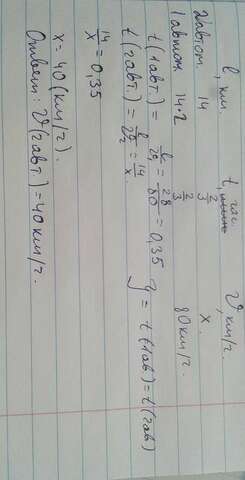 l, км. t, час V, км/ч.
2автом. 14 ? x.
1автом 14·2 ? 80км/ч.
t(1авт.) = l/V₁ = 28/80 = 0,35 ч = t(1ав)=t(2ав)
t(2авт.) = l/V₂ = 14/x
14/x = 0,35
x = 40 (км/ч).
Ответ: V(2авт.)=40км/ч.